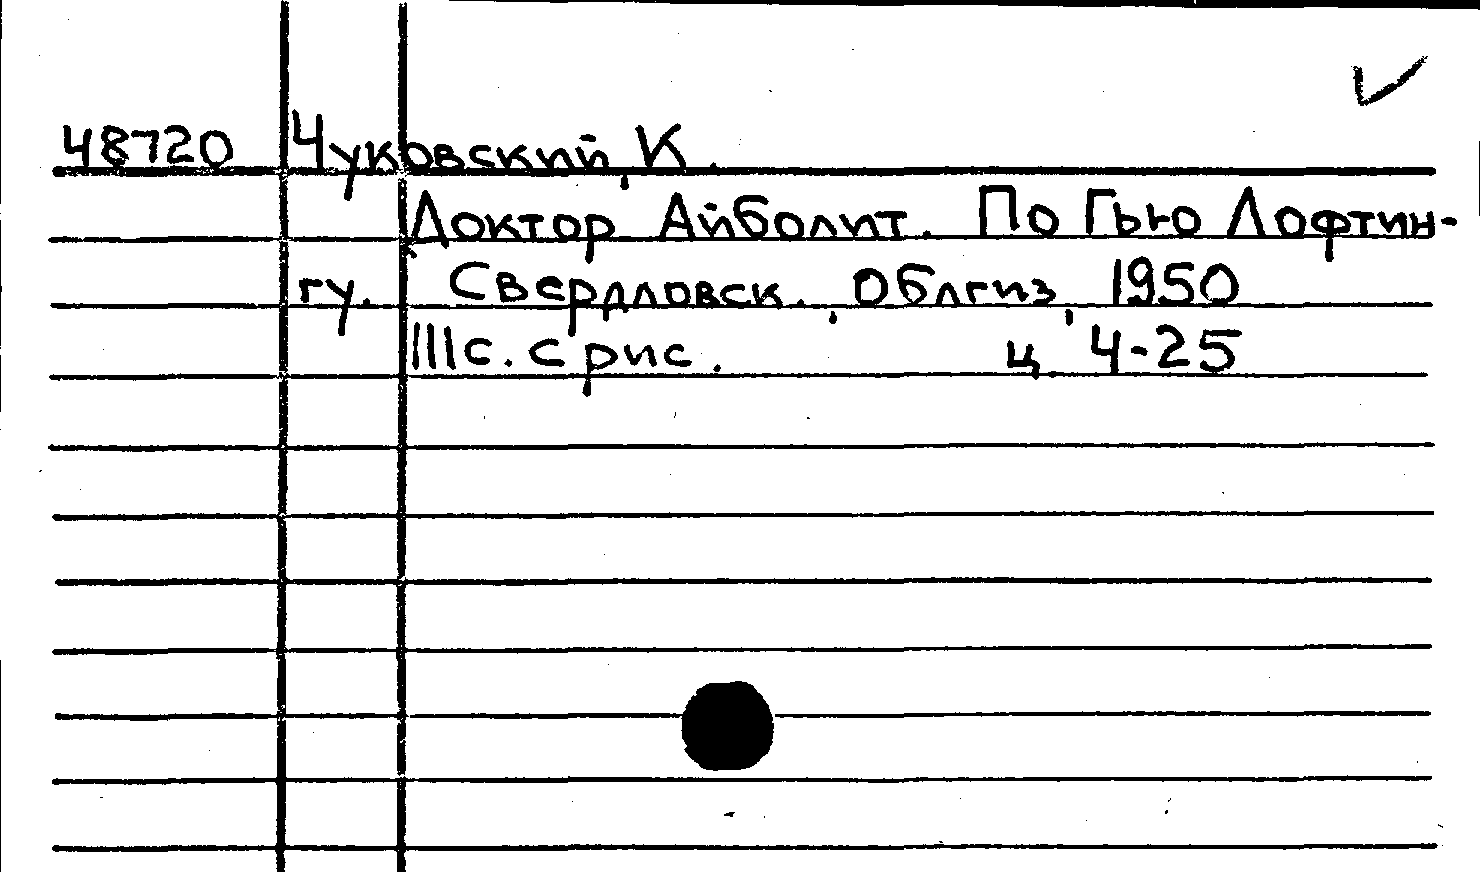 48720 Чуковский, К.
Доктор Айболит. По Гью Лофтин-
гу. Свердловск. Облгиз, 1950
111с. с рис. ц. 4-25